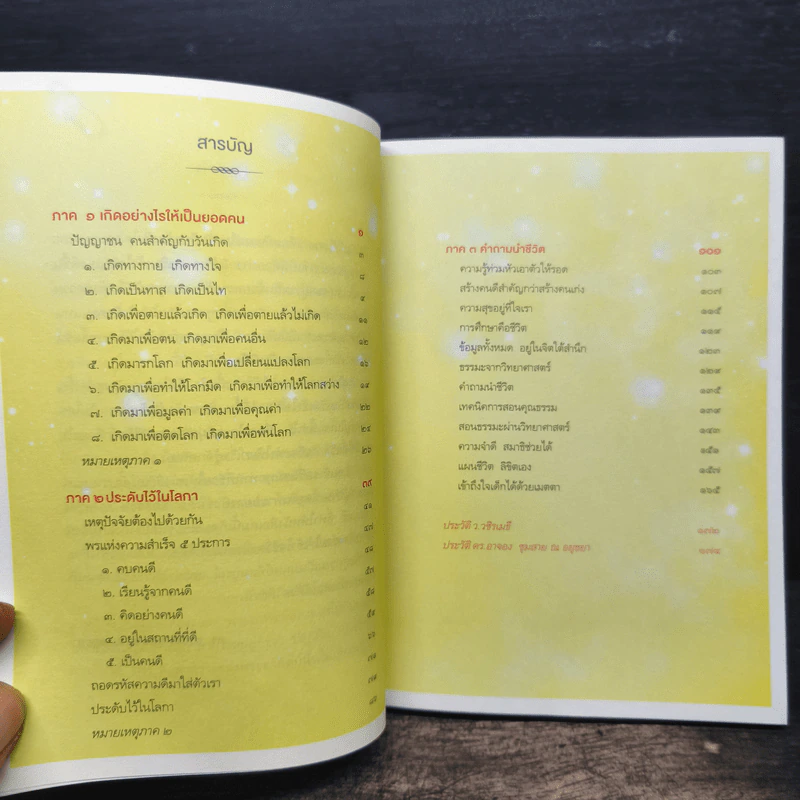 สารบัญ
ภาค ๑ เกิดอย่างไรให้เป็นยอดคน ๑
ปัญญาชน คนสำคัญกับวันเกิด ๓
๑. เกิดทางกาย เกิดทางใจ ๘
๒. เกิดเป็นทาส เกิดเป็นไท
๓. เกิดเพื่อตายแล้วเกิด เกิดเพื่อตายแล้วไม่เกิด ๑๑
๔. เกิดมาเพื่อตน เกิดมาเพื่อคนอื่น ๑๒
๕. เกิดมารกโลก เกิดมาเพื่อเปลี่ยนแปลงโลก ๑๖
๖. เกิดมาเพื่อทำให้โลกมืด เกิดมาเพื่อทำให้โลกสว่าง
๗. เกิดมาเพื่อมูลค่า เกิดมาเพื่อคุณค่า ๒๒
๘. เกิดมาเพื่อติดโลก เกิดมาเพื่อพ้นโลก ๒๔
หมายเหตุภาค ๑ ๒๖
ภาค ๒ ประดับไว้ในโลกา
เหตุปัจจัยต้องไปด้วยกัน
พรแห่งความสำเร็จ ๕ ประการ
๑. คบคนดี
๒. เรียนรู้จากคนดี
๓. คิดอย่างคนดี
๔. อยู่ในสถานที่ที่ดี
๕. เป็นคนดี
ถอดรหัสความดีมาใส่ตัวเรา
ประดับไว้ในโลกา
หมายเหตุภาค ๒
ภาค ๓ คำถามนำชีวิต ๑๐๑
ความรู้ท่วมหัวเอาตัวให้รอด ๑๐๓
สร้างคนดีสำคัญกว่าสร้างคนเก่ง ๑๐๗
ความสุขอยู่ที่ใจเรา ๑๑๕
การศึกษาคือชีวิต
ข้อมูลทั้งหมด อยู่ในจิตใต้สำนึก ๑๒๓
ธรรมะจากวิทยาศาสตร์
คำถามนำชีวิต ๑๓๕
เทคนิคการสอนคุณธรรม
สอนธรรมะผ่านวิทยาศาสตร์
ความจำดี สมาธิช่วยได้ ๑๕๑
แผนชีวิต ลิขิตเอง ๑๕๗
เข้าถึงใจเด็กได้ด้วยเมตตา ๑๖๕
ประวัติ ว.วชิรเมธี ๑๗๒
ประวัติ ดร.อาจอง ชุมสาย ณ อยุธยา